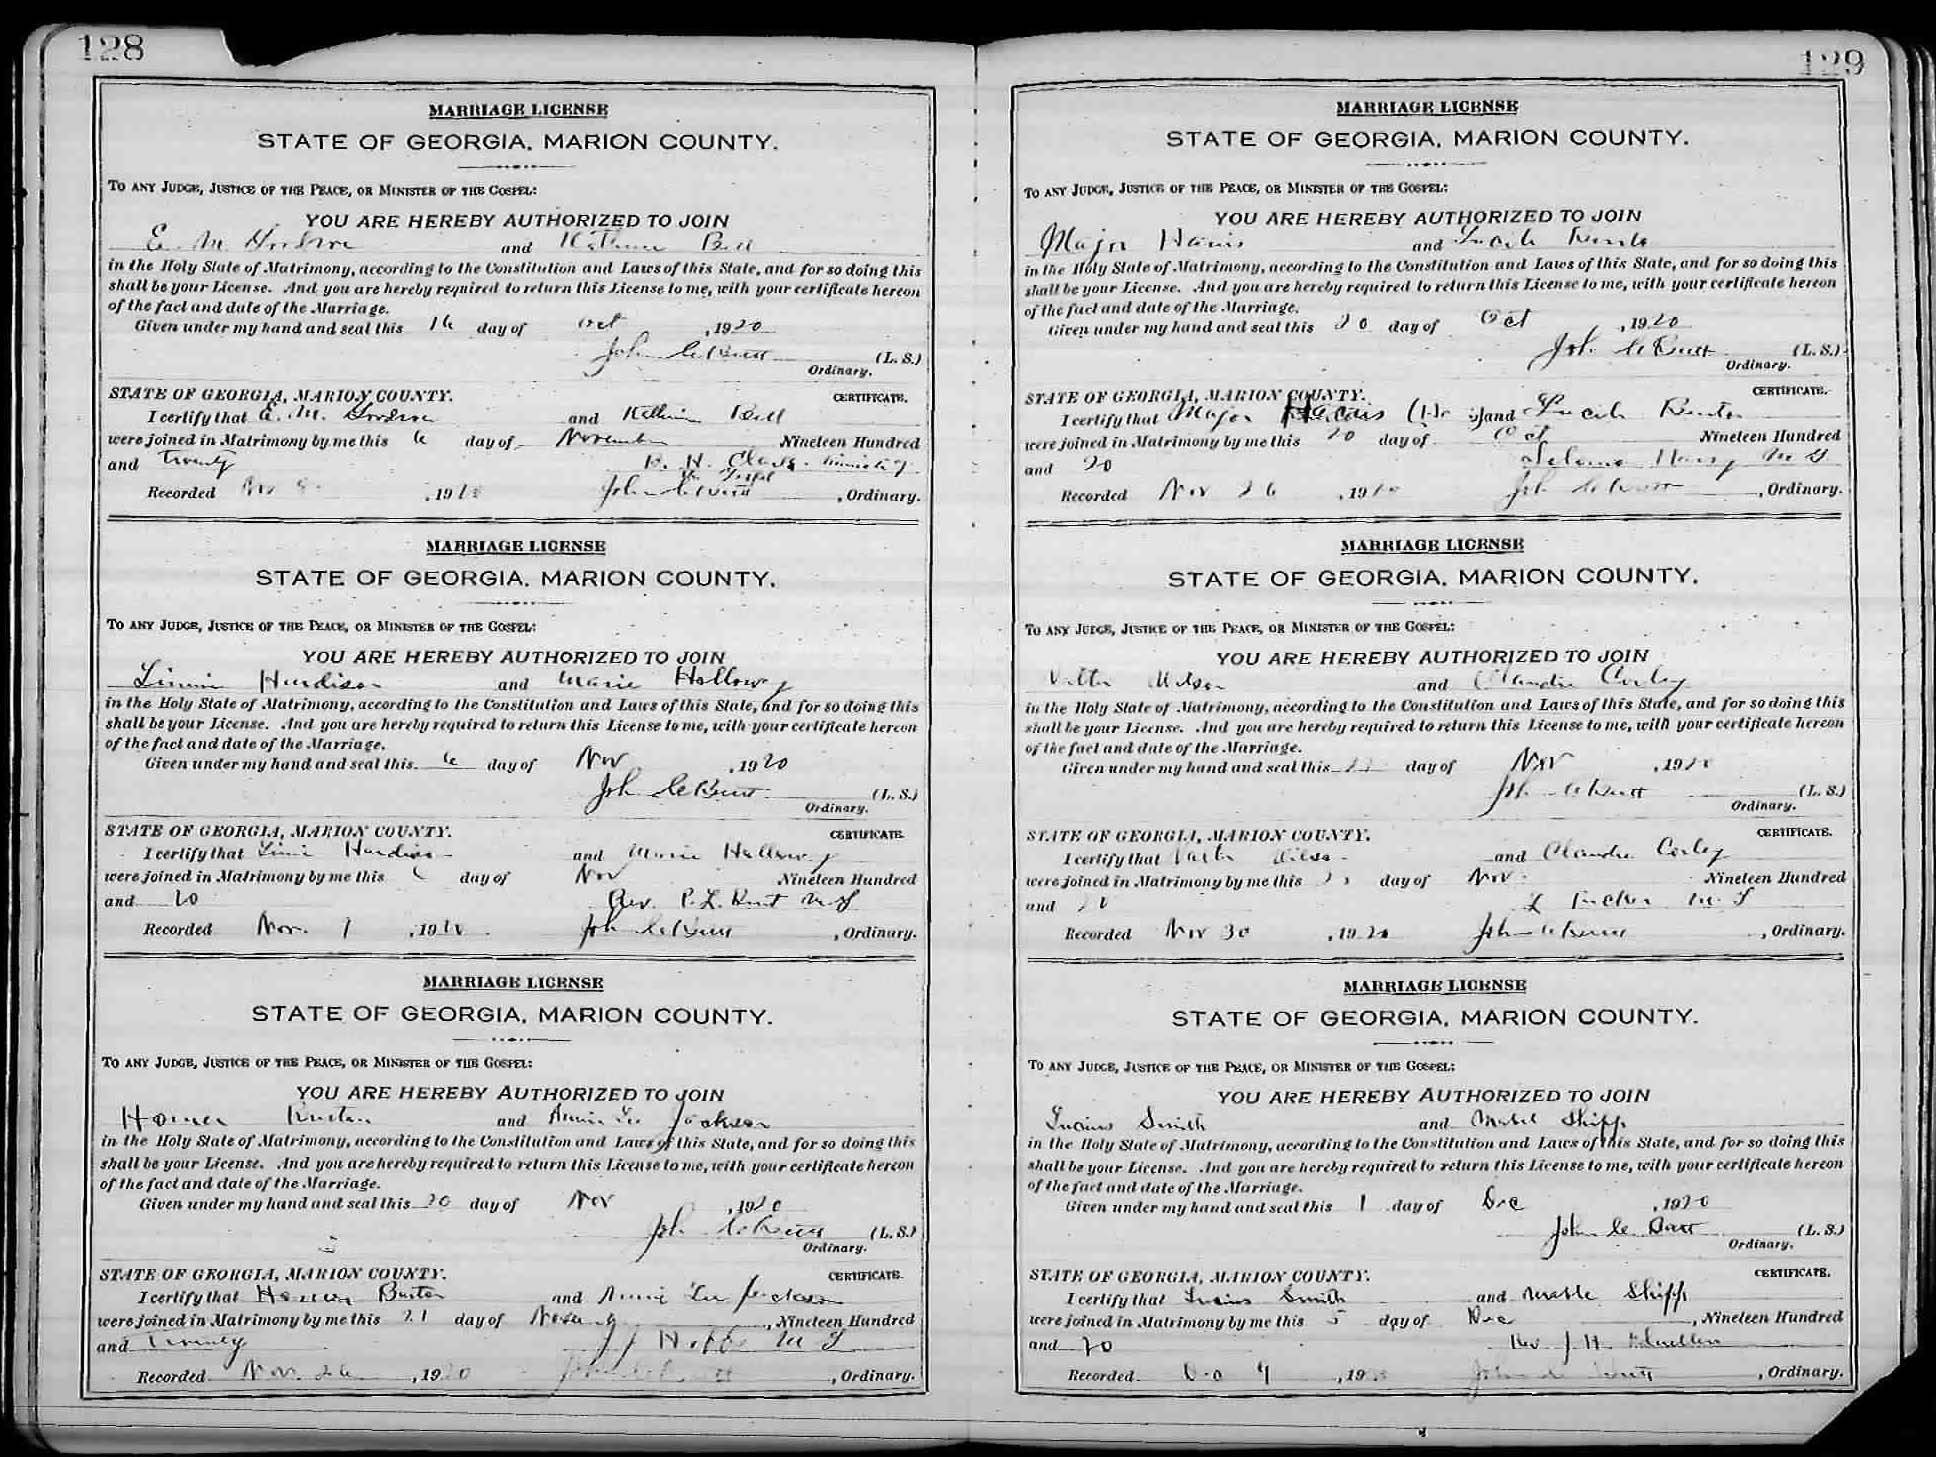 128
MARRIAGE LICENSE
STATE OF GEORGIA, MARION COUNTY.
TO ANY JUDGE, JUSTICE OF THE PEACE, OR MINISTER OF THE GOSPEL:
YOU ARE HEREBY AUTHORIZED TO JOIN
E. M. and Bell
in the Holy State of Matrimony, according to the Constitution and Laws of this State, and for so doing this
shall be your License. And you are hereby required to return this License to me, with your certificate hereon
of the fact and date of the Marriage.
Given under my hand and seal this 16 day of Oct, 1920
John C. Butt (L. S.)
Ordinary.
STATE OF GEORGIA, MARION COUNTY. CERTIFICATE.
I certify that E. M. and Bell
were joined in Matrimony by me this 6 day of November Nineteen Hundred
and twenty B. H.
Recorded Nov , 1920 John C. Butt, Ordinary.
MARRIAGE LICENSE
STATE OF GEORGIA, MARION COUNTY.
TO ANY JUDGE, JUSTICE OF THE PEACE, OR MINISTER OF THE GOSPEL:
YOU ARE HEREBY AUTHORIZED TO JOIN
Hardison and Marie Holloway
in the Holy State of Matrimony, according to the Constitution and Laws of this State, and for so doing this
shall be your License. And you are hereby required to return this License to me, with your certificate hereon
of the fact and date of the Marriage.
Given under my hand and seal this 6 day of Nov, 1920
John C. Butt (L. S.)
Ordinary.
STATE OF GEORGIA, MARION COUNTY. CERTIFICATE.
I certify that Hardison and Marie Holloway
were joined in Matrimony by me this day of Nov Nineteen Hundred
and 20 Rev. P. L. M G
Recorded Nov. , 1920 John C. Butt, Ordinary.
MARRIAGE LICENSE
STATE OF GEORGIA, MARION COUNTY.
TO ANY JUDGE, JUSTICE OF THE PEACE, OR MINISTER OF THE GOSPEL:
YOU ARE HEREBY AUTHORIZED TO JOIN
Homer Burton and Annie Lee Jackson
in the Holy State of Matrimony, according to the Constitution and Laws of this State, and for so doing this
shall be your License. And you are hereby required to return this License to me, with your certificate hereon
of the fact and date of the Marriage.
Given under my hand and seal this 20 day of Nov, 1920
John C. Butt (L. S.)
Ordinary.
STATE OF GEORGIA, MARION COUNTY. CERTIFICATE.
I certify that Homer Burton and Annie Lee Jackson
were joined in Matrimony by me this 21 day of , Nineteen Hundred
and Twenty M G
Recorded Nov. 26, 1920 John C. Butt, Ordinary.
129
MARRIAGE LICENSE
STATE OF GEORGIA, MARION COUNTY.
TO ANY JUDGE, JUSTICE OF THE PEACE, OR MINISTER OF THE GOSPEL:
YOU ARE HEREBY AUTHORIZED TO JOIN
Major Harris and Lucile
in the Holy State of Matrimony, according to the Constitution and Laws of this State, and for so doing this
shall be your License. And you are hereby required to return this License to me, with your certificate hereon
of the fact and date of the Marriage.
Given under my hand and seal this 20 day of Oct, 1920
John C. Butt (L. S.)
Ordinary.
STATE OF GEORGIA, MARION COUNTY. CERTIFICATE.
I certify that Major Harris and Lucile
were joined in Matrimony by me this 20 day of Oct Nineteen Hundred
and 20 M G
Recorded Nov 26, 1920 John C. Butt, Ordinary.
MARRIAGE LICENSE
STATE OF GEORGIA, MARION COUNTY.
TO ANY JUDGE, JUSTICE OF THE PEACE, OR MINISTER OF THE GOSPEL:
YOU ARE HEREBY AUTHORIZED TO JOIN
Wilson and Claudie Corley
in the Holy State of Matrimony, according to the Constitution and Laws of this State, and for so doing this
shall be your License. And you are hereby required to return this License to me, with your certificate hereon
of the fact and date of the Marriage.
Given under my hand and seal this day of Nov, 1920
John C. Butt (L. S.)
Ordinary.
STATE OF GEORGIA, MARION COUNTY. CERTIFICATE.
I certify that and Claudie Corley
were joined in Matrimony by me this day of Nov. Nineteen Hundred
and 20 Tucker M. G
Recorded Nov 30, 1920 John C. Butt, Ordinary.
MARRIAGE LICENSE
STATE OF GEORGIA, MARION COUNTY.
TO ANY JUDGE, JUSTICE OF THE PEACE, OR MINISTER OF THE GOSPEL:
YOU ARE HEREBY AUTHORIZED TO JOIN
Lucius Smith and Mabel Shipp
in the Holy State of Matrimony, according to the Constitution and Laws of this State, and for so doing this
shall be your License. And you are hereby required to return this License to me, with your certificate hereon
of the fact and date of the Marriage.
Given under my hand and seal this 1 day of Dec, 1920
John C. Butt (L. S.)
Ordinary.
STATE OF GEORGIA, MARION COUNTY. CERTIFICATE.
I certify that Lucius Smith and Mable Shipp
were joined in Matrimony by me this 5 day of Dec, Nineteen Hundred
and 20 Rev J. H.
Recorded Dec 9, 1920 John C. Butt, Ordinary.